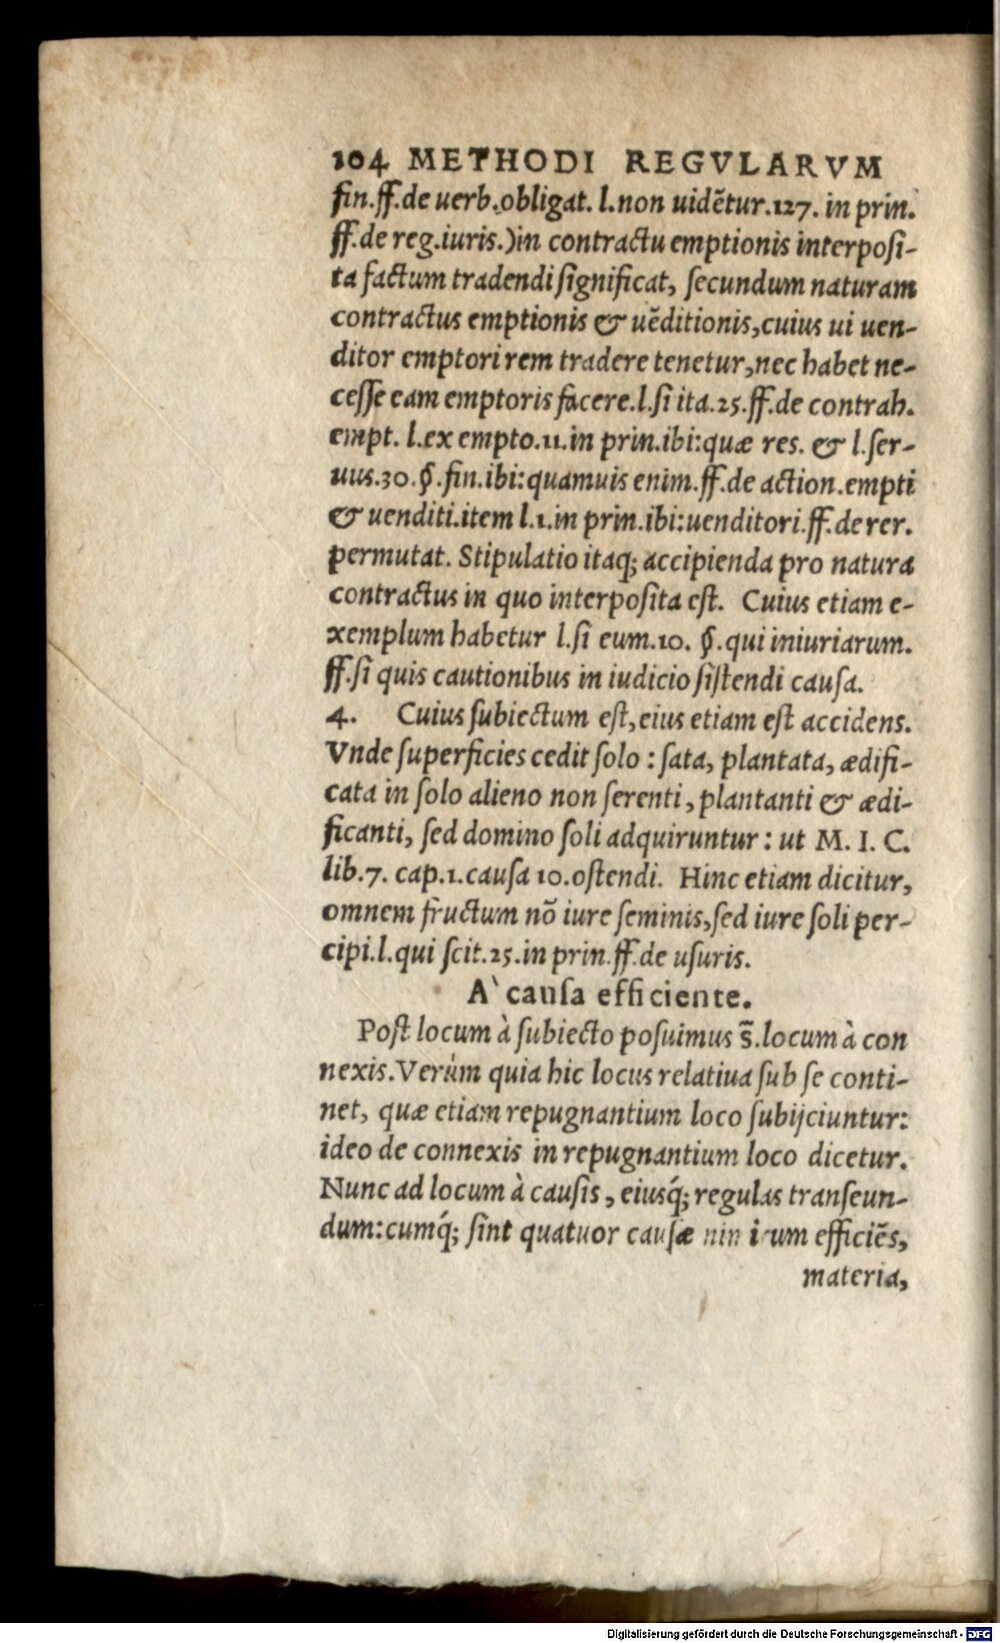 104 METHODI REGVLARVM
fin.ff.de uerb.obligat. l.non uidẽtur.127. in prin.
ff.de reg.iuris.)in contractu emptionis interposi-
ta factum tradendi significat, secundum naturam
contractus emptionis & uẽditionis,cuius ui uen-
ditor emptori rem tradere tenetur,nec habet ne-
cesse eam emptoris facere.l.si ita.25.ff.de contrah.
empt. l.ex empto.11.in prin.ibi:quæ res. & l.ser-
uus.30.§.fin.ibi:quamuis enim.ff.de action.empti
& uenditi.item l.1.in prin.ibi:uenditori.ff.de rer.
permutat. Stipulatio itaq; accipienda pro natura
contractus in quo interposita est. Cuius etiam e-
xemplum habetur l.si eum.10. §.qui iniuriarum.
ff.si quis cautionibus in iudicio sistendi causa.
4. Cuius subiectum est,eius etiam est accidens.
Vnde superficies cedit solo : sata, plantata, ædifi-
cata in solo alieno non serenti, plantanti & ædi-
ficanti, sed domino soli adquiruntur : ut M. I. C.
lib.7. cap.1.causa 10.ostendi. Hinc etiam dicitur,
omnem fructum nõ iure seminis,sed iure soli per-
cipi.l.qui scit.25.in prin.ff.de usuris.
A` causa efficiente.
Post locum à subiecto posuimus s̃.locum à con
nexis.Verùm quia hic locus relatiua sub se conti-
net, quæ etiam repugnantium loco subijciuntur:
ideo de connexis in repugnantium loco dicetur.
Nunc ad locum à causis, eiusq́; regulas transeun-
dum:cumq́; sint quatuor causæ nimirum efficiẽs,
materia,
Digitalisierung gefördert durch die Deutsche Forschungsgemeinschaft - DFG